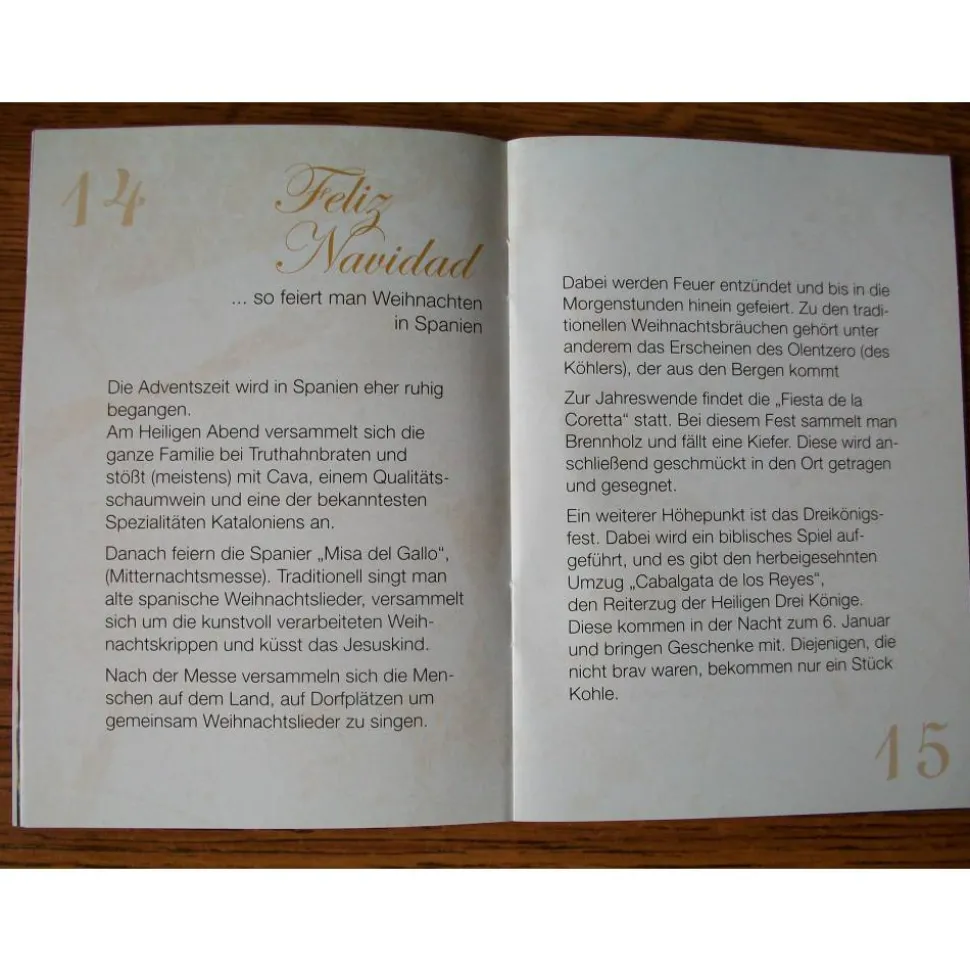 14
Feliz
Navidad
... so feiert man Weihnachten
in Spanien
Die Adventszeit wird in Spanien eher ruhig
begangen.
Am Heiligen Abend versammelt sich die
ganze Familie bei Truthahnbraten und
stößt (meistens) mit Cava, einem Qualitäts-
schaumwein und eine der bekanntesten
Spezialitäten Kataloniens an.
Danach feiern die Spanier „Misa del Gallo“,
(Mitternachtsmesse). Traditionell singt man
alte spanische Weihnachtslieder, versammelt
sich um die kunstvoll verarbeiteten Weih-
nachtskrippen und küsst das Jesuskind.
Nach der Messe versammeln sich die Men-
schen auf dem Land, auf Dorfplätzen um
gemeinsam Weihnachtslieder zu singen.
Dabei werden Feuer entzündet und bis in die
Morgenstunden hinein gefeiert. Zu den tradi-
tionellen Weihnachtsbräuchen gehört unter
anderem das Erscheinen des Olentzero (des
Köhlers), der aus den Bergen kommt
Zur Jahreswende findet die „Fiesta de la
Coretta“ statt. Bei diesem Fest sammelt man
Brennholz und fällt eine Kiefer. Diese wird an-
schließend geschmückt in den Ort getragen
und gesegnet.
Ein weiterer Höhepunkt ist das Dreikönigs-
fest. Dabei wird ein biblisches Spiel auf-
geführt, und es gibt den herbeigesehnten
Umzug „Cabalgata de los Reyes“,
den Reiterzug der Heiligen Drei Könige.
Diese kommen in der Nacht zum 6. Januar
und bringen Geschenke mit. Diejenigen, die
nicht brav waren, bekommen nur ein Stück
Kohle.
15